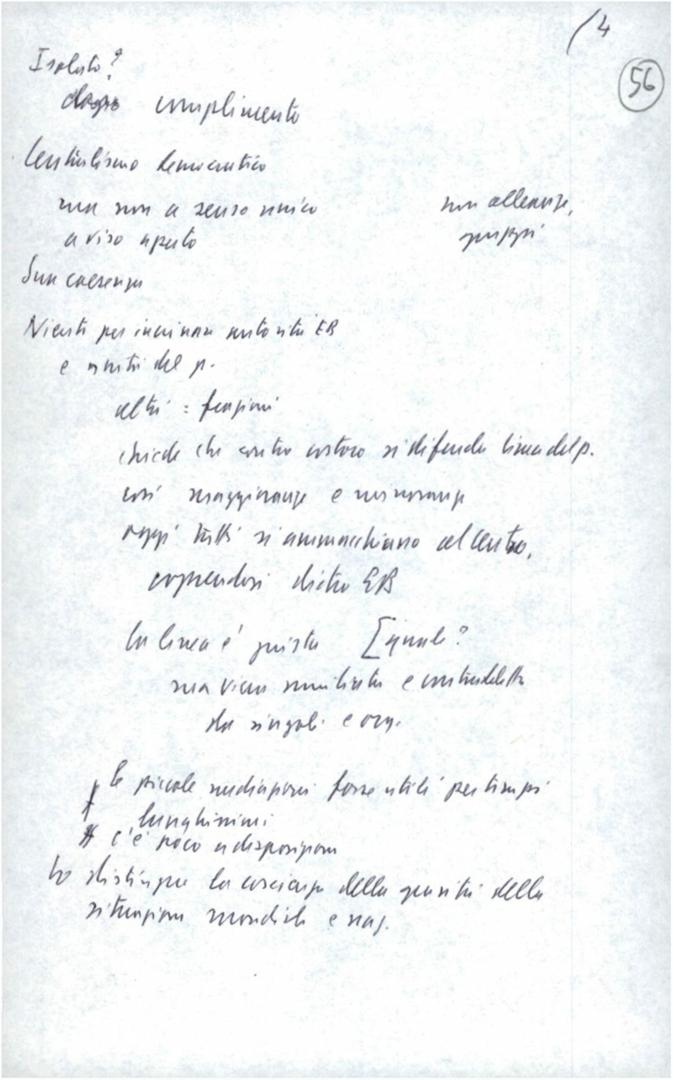 /4
56
Isolato?
complimento
Centralismo democratico
ma non a senso unico
non alleanze,
a viso aperto
gruppi
Sua coerenza
Niente per incrinare autorità EB
e unità del p.
altri: frazioni
chiede che contro costoro si difenda linea del p.
così maggioranze e minoranze
oggi tutti si ammucchiano al centro,
coprendosi dietro EB
la linea è giusta [quale?
ma viene umiliata e contraddetta
da singoli e org.
le piccole mediazioni forse utili per tempi
lunghissimi
c'è poco a disposizione
lo distingue la coscienza della gravità della
situazione mondiale e naz.